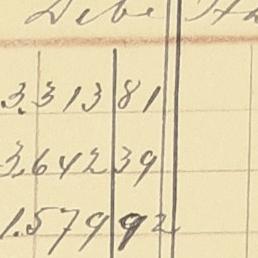 Debe Ha
3.313 81
3.642 39
1.579 92